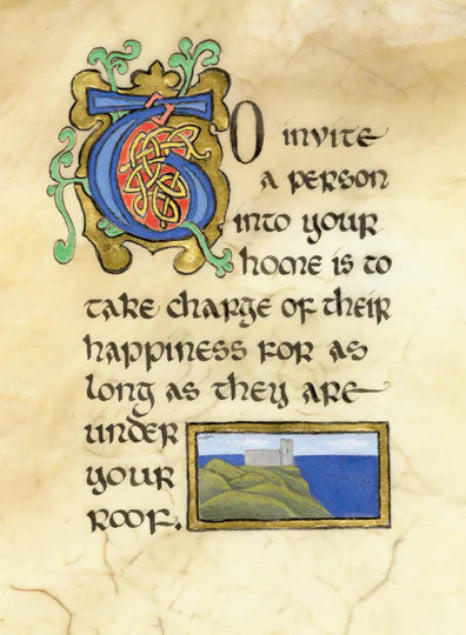 To invite
a person
into your
home is to
take charge of their
happiness for as
long as they are
under
your
roof.